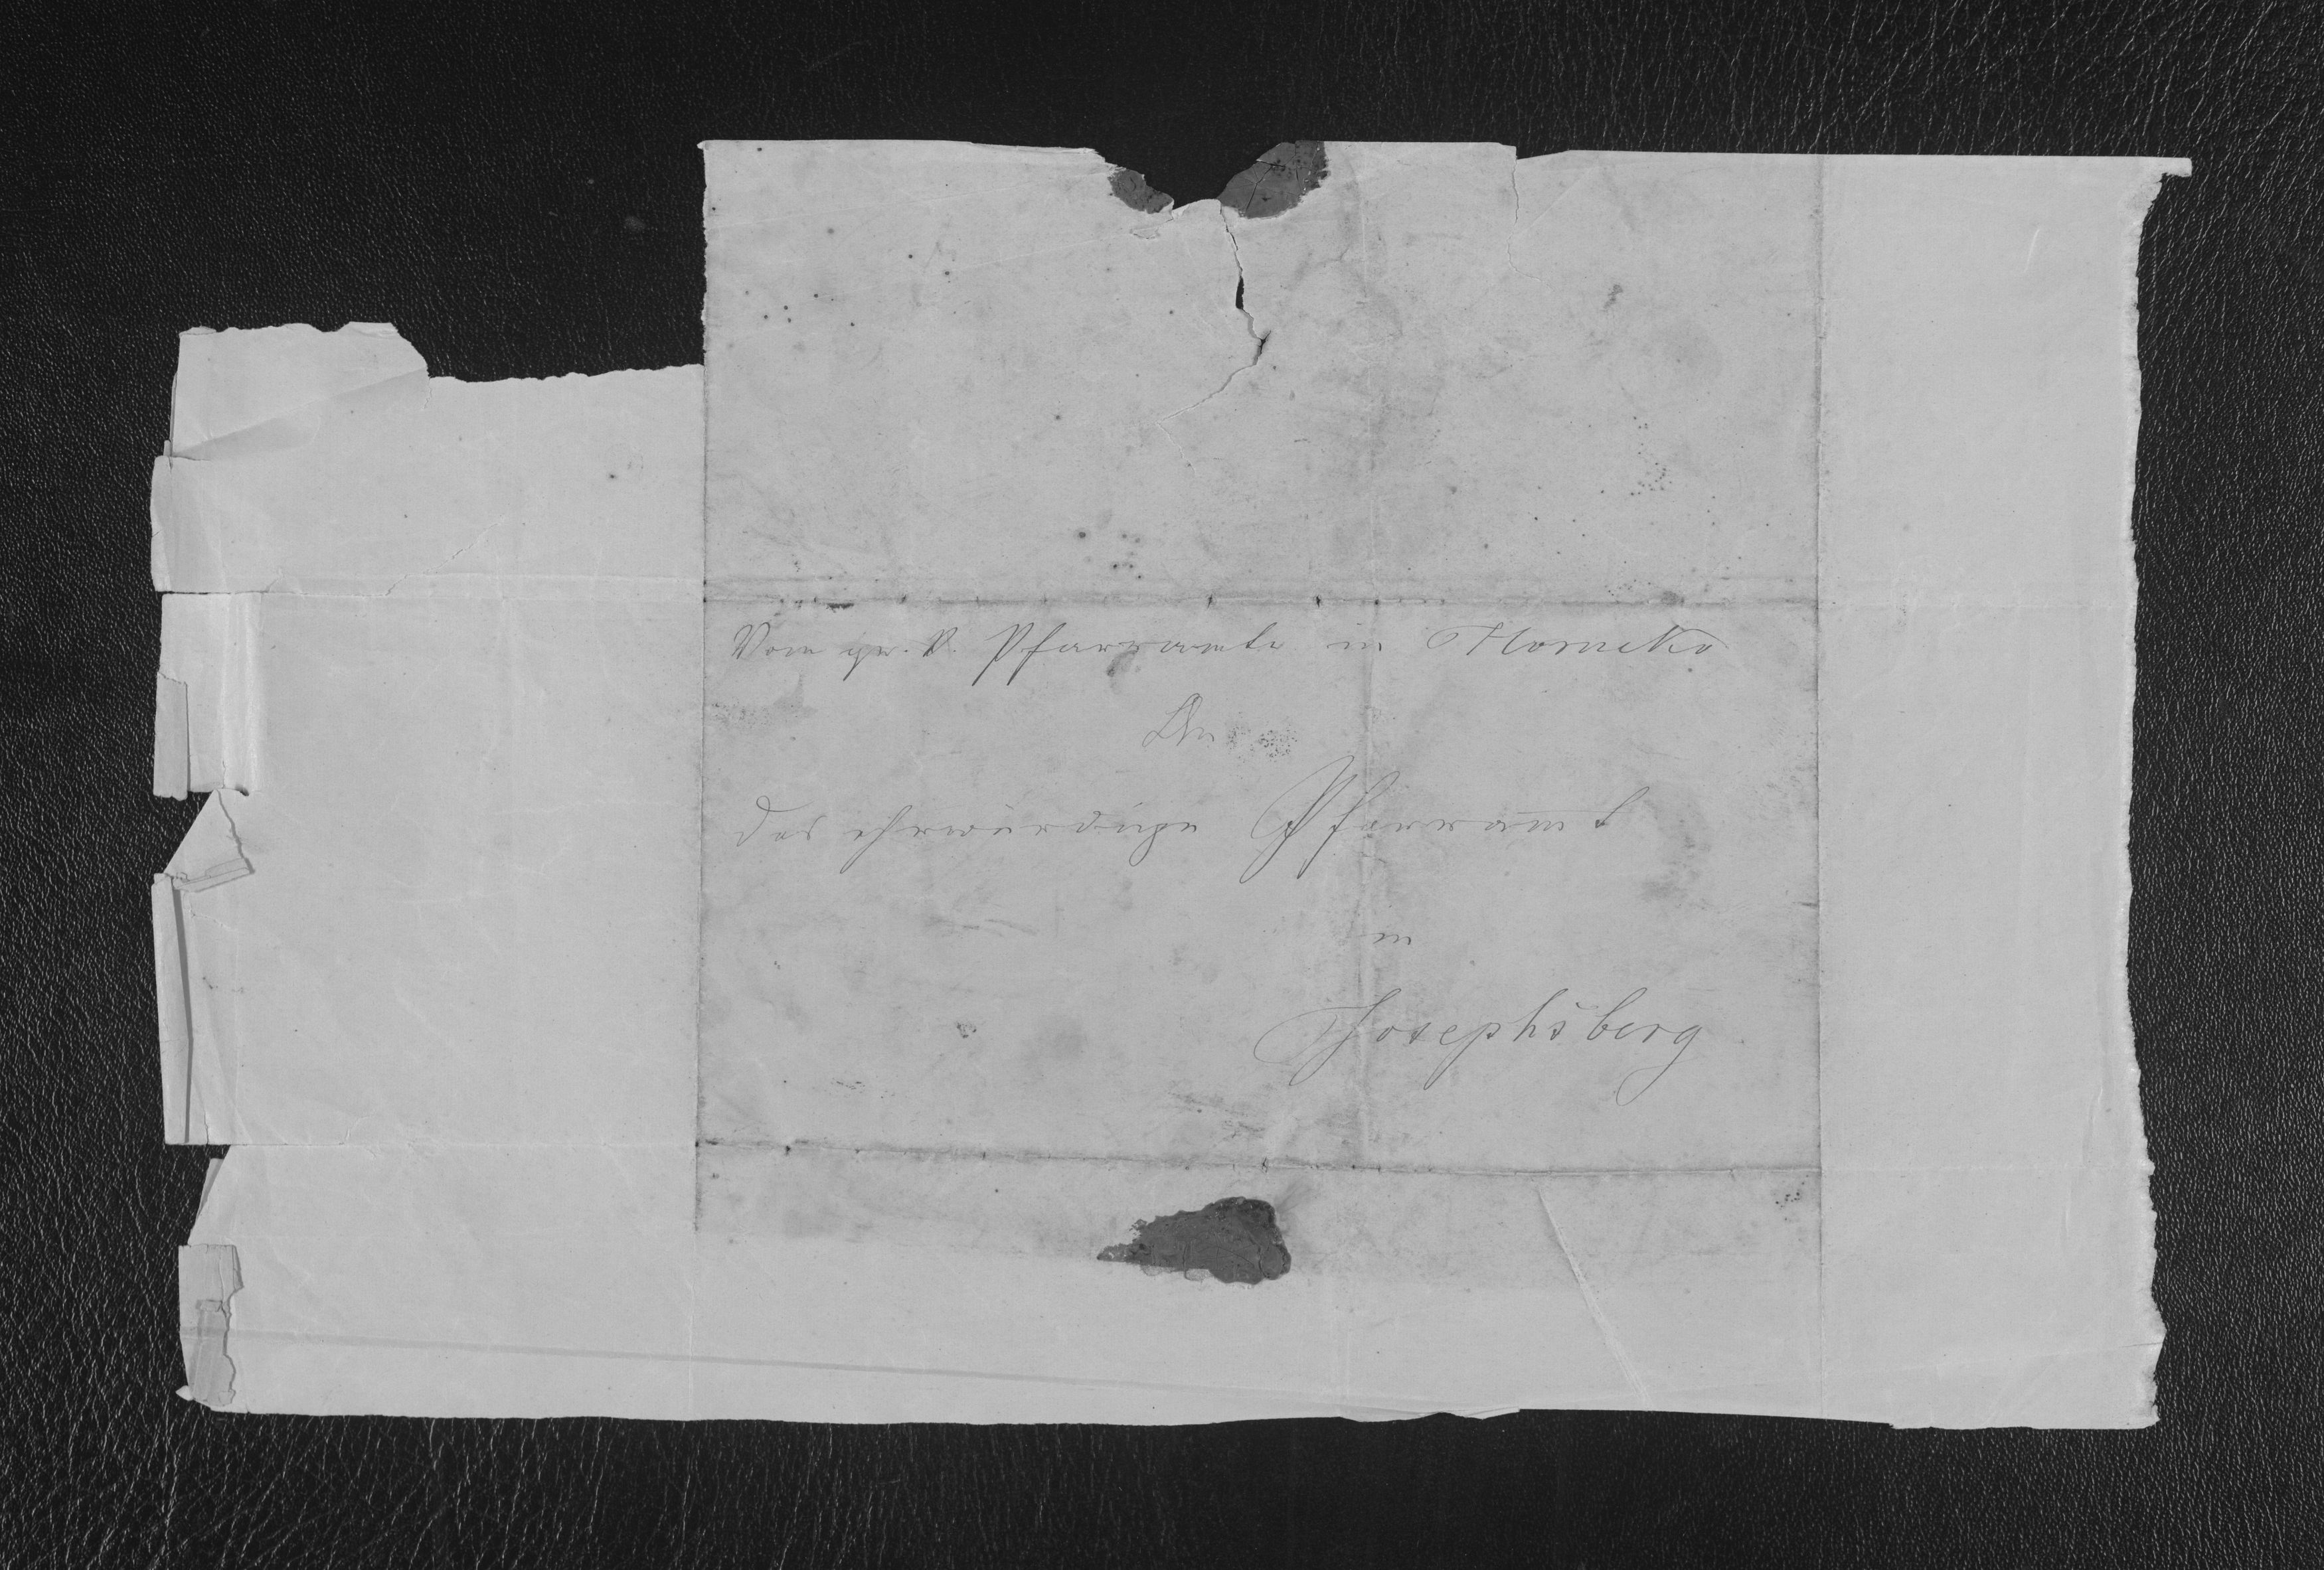 Vom gr. k. Pfarramte in Horucko
An
das ehrwürdige Pfarramt
in
Josephsberg